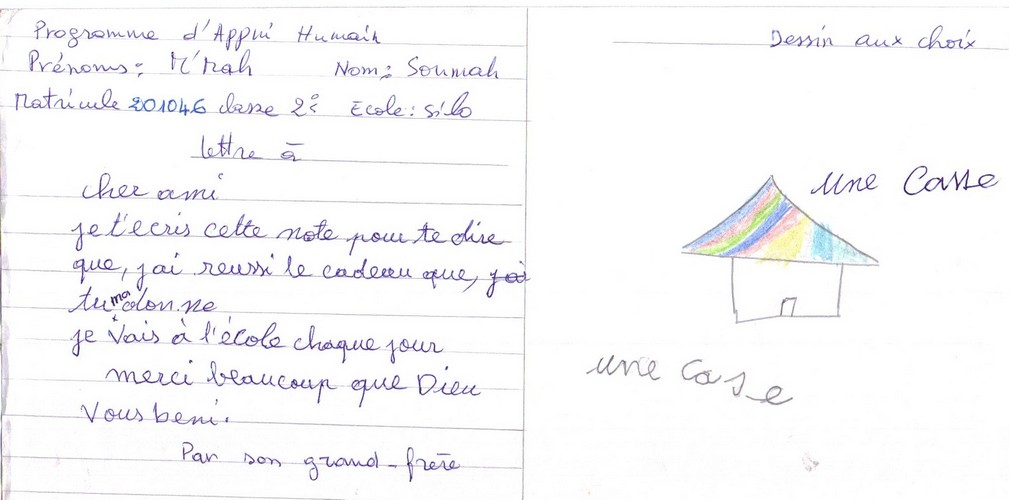 Programme d'Appui Humain
Prénoms: M'Mah Nom: Soumah
Matricule 201046 classe 2e Ecole: silo
lettre à
cher ami
je t'ecris cette note pour te dire
que, j'ai reussi le cadeau que, j'ai
tu ma don.ne
je vais à l'école chaque jour
merci beaucoup que Dieu
vous beni.
Par son grand-frère
Dessin aux choix
une Casse
une case